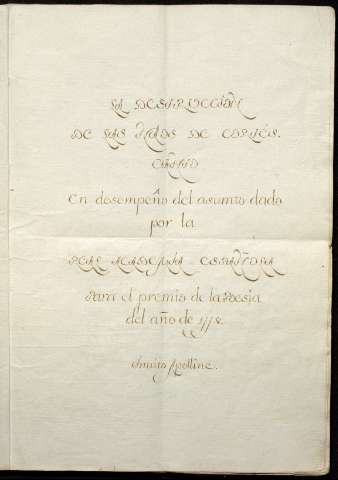 LA DESTRUCCION
DE LAS NAVES DE CORTÉS.
CANTO
En desempeño del asumto dado
por la
REAL ACADEMIA ESPAÑOLA
Para el premio de la Poesia
del año de 1778.
Apolline.